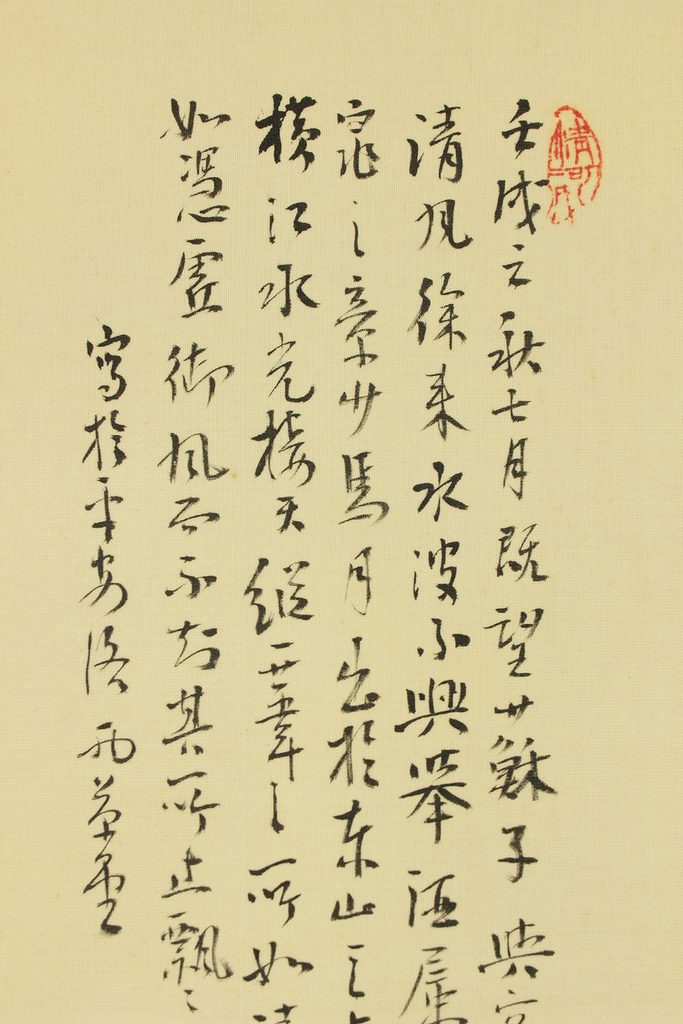 壬戌之秋七月既望蘇子與
清風徐來水波不興舉酒屬
窕之章少焉月出於東山之
橫江水光接天縱一葦之所如
如憑虛御風而不知其所止飄〻
寫於平安洛雨草堂